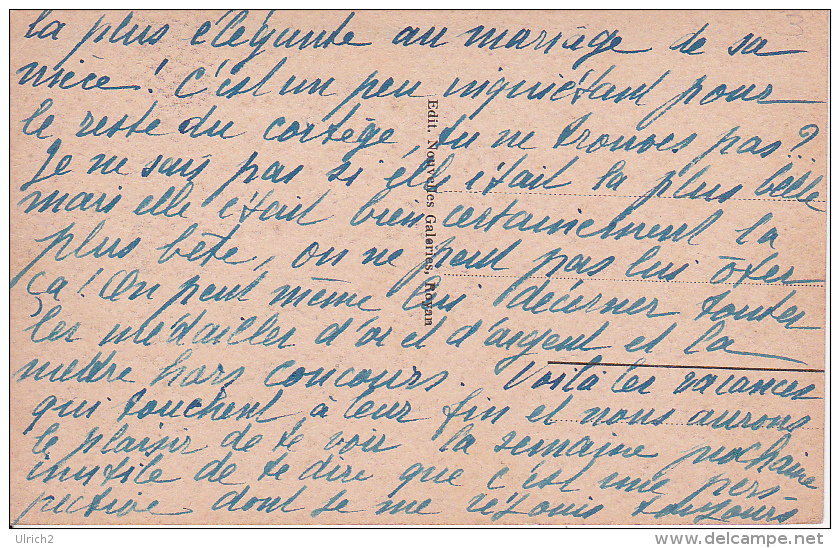 la plus élégante au mariage de sa
nièce! c'est un peu inquiétant pour
le reste du cortège, tu ne trouves pas?
Je ne sais pas si elle était la plus belle
mais elle était bien certainement la
plus bête, on ne peut pas lui ôter
ça! On peut même lui décerner toutes
les médailles d'or et d'argent et la
mettre hors concours. Voilà les vacances
qui touchent à leur fin et nous aurons
le plaisir de te voir la semaine prochaine
inutile de te dire que c'est une pers
pective dont je me réjouis toujours
Edit. Nouvelles Galeries, Royan
Ulrich2
delcampe.net